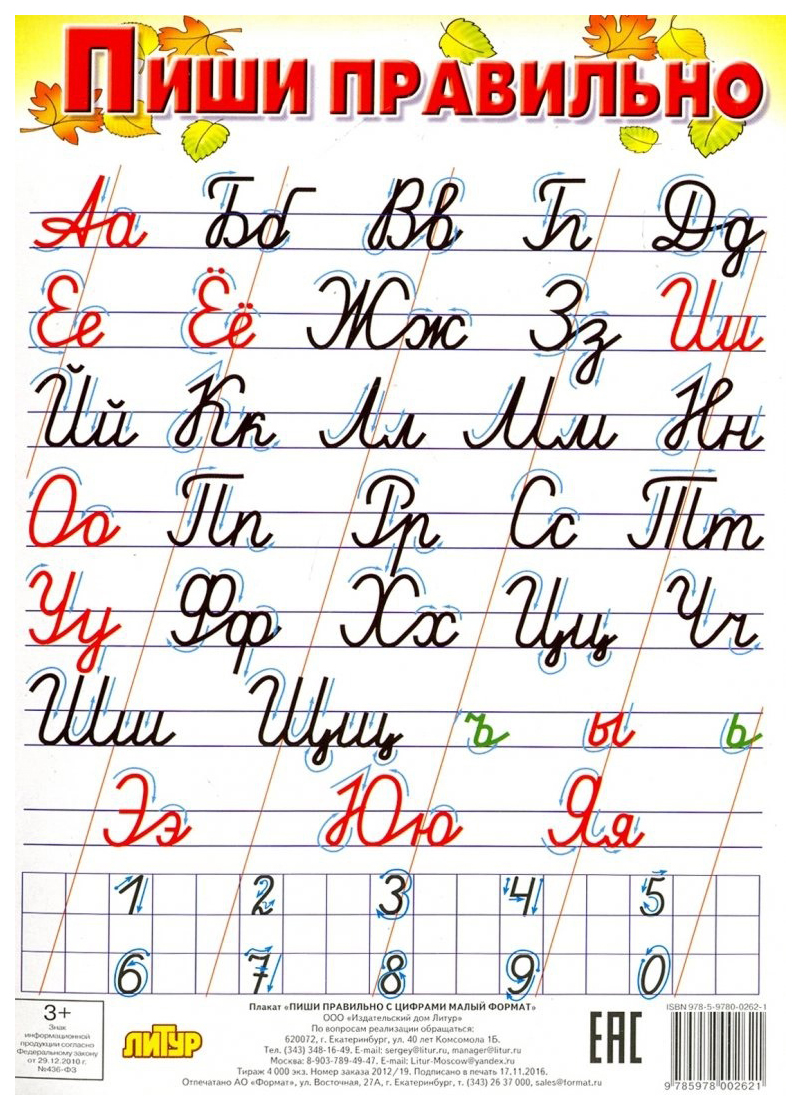 Пиши правильно
Аа Бб Вв Гг Дд
Ее Ёё Жж Зз Ии
Йй Кк Лл Мм Нн
Оо Пп Рр Сс Тт
Уу Фф Хх Цц Чч
Шш Щщ ъ ы ь
Ээ Юю Яя
1 2 3 4 5
6 7 8 9 0
3+
Знак
информационной
продукции согласно
Федеральному закону
от 29.12.2010 г.
№436-ФЗ
ЛИТУР
Плакат «ПИШИ ПРАВИЛЬНО С ЦИФРАМИ МАЛЫЙ ФОРМАТ»
ООО «Издательский дом Литур»
По вопросам реализации обращаться:
620072, г. Екатеринбург, ул. 40 лет Комсомола 1Б.
Тел. (343) 348-16-49, E-mail: sergey@litur.ru, manager@litur.ru
Москва: 8-903-789-49-47. E-mail: Litur-Moscow@yandex.ru
Тираж 4 000 экз. Номер заказа 2012/19. Подписано в печать 17.11.2016.
Отпечатано АО «Формат», ул. Восточная, 27А, г. Екатеринбург, т. (343) 26 37 000, sales@format.ru
ЕАС
ISBN 978-5-9780-0262-1
9 785978 002621